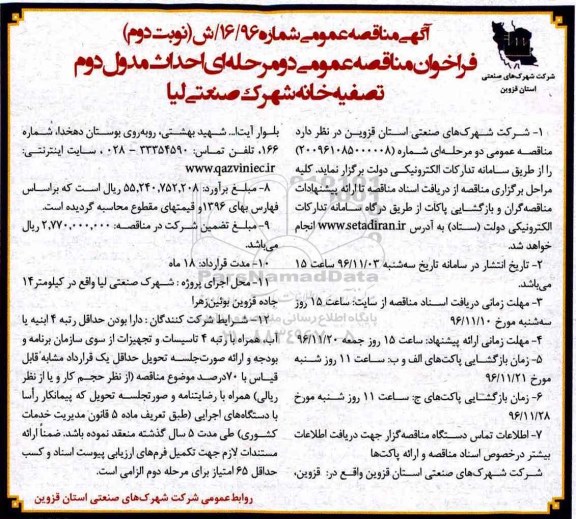 آگهی مناقصه عمومی شماره ۱۶/۹۶/ش (نوبت دوم)
فراخوان مناقصه عمومی دو مرحله‌ای احداث مدول دوم
تصفیه خانه شهرک صنعتی لیا
شرکت شهرک‌های صنعتی
استان قزوین
۱- شرکت شهرک‌های صنعتی استان قزوین در نظر دارد
مناقصه عمومی دو مرحله‌ای شماره (۲۰۰۹۶۱۰۸۵۰۰۰۰۰۸)
را از طریق سامانه تدارکات الکترونیکی دولت برگزار نماید. کلیه
مراحل برگزاری مناقصه از دریافت اسناد مناقصه تا ارائه پیشنهادات
مناقصه‌گران و بازگشایی پاکات از طریق درگاه سامانه تدارکات
الکترونیکی دولت (ستاد) به آدرس www.setadiran.ir انجام
خواهد شد.
۲- تاریخ انتشار در سامانه تاریخ سه‌شنبه ۹۶/۱۱/۰۳ ساعت ۱۵
می‌باشد.
۳- مهلت زمانی دریافت اسناد مناقصه از سایت: ساعت ۱۵ روز
سه‌شنبه مورخ ۹۶/۱۱/۱۰
۴- مهلت زمانی ارائه پیشنهاد: ساعت ۱۵ روز جمعه ۹۶/۱۱/۲۰
۵- زمان بازگشایی پاکت‌های الف و ب: ساعت ۱۱ روز شنبه
مورخ ۹۶/۱۱/۲۱
۶- زمان بازگشایی پاکت‌های ج: ساعت ۱۱ روز شنبه مورخ
۹۶/۱۱/۲۸
۷- اطلاعات تماس دستگاه مناقصه‌گزار جهت دریافت اطلاعات
بیشتر درخصوص اسناد مناقصه و ارائه پاکت‌ها
شرکت شهرک‌های صنعتی استان قزوین واقع در: قزوین،
بلوار آیت‌ا... شهید بهشتی، روبه‌روی بوستان دهخدا، شماره
۱۶۶، تلفن تماس: ۳۳۳۵۴۵۹۰ - ۰۲۸ ، سایت اینترنتی:
www.qazviniec.ir
۸- مبلغ برآورد: ۵۵,۲۴۰,۷۵۲,۲۰۸ ریال است که براساس
فهارس بهای ۱۳۹۶و قیمتهای مقطوع محاسبه گردیده است.
۹- مبلغ تضمین شرکت در مناقصه: ۲,۷۷۰,۰۰۰,۰۰۰ ریال
می‌باشد.
۱۰- مدت قرارداد: ۱۸ ماه
۱۱- محل اجرای پروژه : شهرک صنعتی لیا واقع در کیلومتر۱۴
جاده قزوین بوئین‌زهرا
۱۲- شرایط شرکت کنندگان : دارا بودن حداقل رتبه ۴ ابنیه یا
آب، همراه با رتبه ۴ تاسیسات و تجهیزات از سوی سازمان برنامه و
بودجه و ارائه صورت‌جلسه تحویل حداقل یک قرارداد مشابه قابل
قیاس با ۷۰درصد موضوع مناقصه (از نظر حجم کار و یا از نظر
ریالی) همراه با رضایتنامه و صورتجلسه تحویل که پیمانکار رأسا
با دستگاه‌های اجرایی (طبق تعریف ماده ۵ قانون مدیریت خدمات
کشوری) طی مدت ۵ سال گذشته منعقد نموده باشد. ضمناً ارائه
مستندات لازم جهت تکمیل فرم‌های ارزیابی پیوست اسناد و کسب
حداقل ۶۵ امتیاز برای مرحله دوم الزامی است.
روابط عمومی شرکت شهرک‌های صنعتی استان قزوین
ParsNamadData